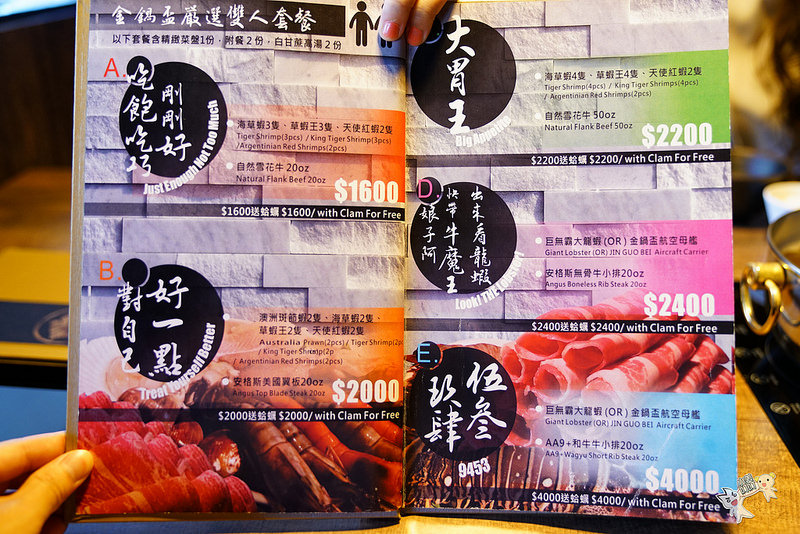 金鍋盃嚴選雙人套餐
以下套餐含精緻菜盤1份，附餐2份，白甘蔗高湯2份
A.
剛剛好
吃飽吃巧
Just Enough Not Too Much
海草蝦3隻、草蝦王3隻、天使紅蝦2隻
Tiger Shrimp(3pcs) / King Tiger Shrimp(3pcs)
/Argentinian Red Shrimps(2pcs)
自然雪花牛 20oz
Natural Flank Beef 20oz
$1600
$1600送蛤蠣 $1600/ with Clam For Free
B.
好一點
對自己
Treat Yourself Better
澳洲斑節蝦2隻、海草蝦2隻、
草蝦王2隻、天使紅蝦2隻
Australia Prawn(2pcs) / Tiger Shrimp(2pc
/ King Tiger Shrimp(2p
/ Argentinian Red Shrimps(2pcs)
安格斯美國翼板20oz
Angus Top Blade Steak 20oz
$2000
$2000送蛤蠣 $2000/ with Clam For Free
大胃王
Big Appetite
海草蝦4隻、草蝦王4隻、天使紅蝦2隻
Tiger Shrimp(4pcs) / King Tiger Shrimps(4pcs)
/ Argentinian Red Shrimps(2pcs)
自然雪花牛 50oz
Natural Flank Beef 50oz
$2200
$2200送蛤蠣 $2200/ with Clam For Free
D.
出來看龍蝦
快帶牛魔王
娘子阿
Look! The Lobster!
巨無霸大龍蝦(OR) 金鍋盃航空母艦
Giant Lobster (OR) JIN GUO BEI Aircraft Carrier
安格斯無骨牛小排20oz
Angus Boneless Rib Steak 20oz
$2400
$2400送蛤蠣 $2400/ with Clam For Free
E.
伍叁
玖肆
9453
巨無霸大龍蝦(OR) 金鍋盃航空母艦
Giant Lobster (OR) JIN GUO BEI Aircraft Carrier
AA9+和牛牛小排20oz
AA9+Wagyu Short Rib Steak 20oz
$4000
$4000送蛤蠣 $4000/ with Clam For Free